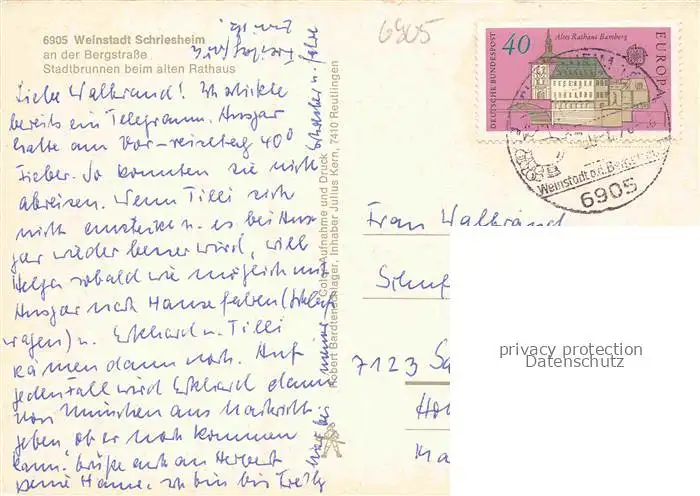 6905 Weinstadt Schriesheim
an der Bergstraße
Stadtbrunnen beim alten Rathaus
6905
Liebe Walbrand! Ich schickte
bereits ein Telegramm. Ansgar
hatte am Vor-reisetag 40°
Fieber. So konnten sie nicht
abreisen. Wenn Tilli sich
nicht ansteckt u. es bei Ans-
gar wieder besser wird, will
Helga sobald wie möglich mit
Ansgar nach Hause fahren (Schlaf-
wagen) u. Ekkhard u. Tilli
kämen dann nach. Auf
jeden Fall wird Ekkhard dann
von München aus Nachricht
geben, ob er noch kommen
kann. Grüße auch an Herbert
Deine Hanne. Ich bin bis
Color-Aufnahme und Druck
Robert Bardtenschlager, Inhaber Julius Kern, 7410 Reutlingen
DEUTSCHE BUNDESPOST
40
Altes Rathaus Bamberg
EUROPA
Weinstadt a.d. Bergstraße
6905
Frau Walbrand
7123
privacy protection
Datenschutz